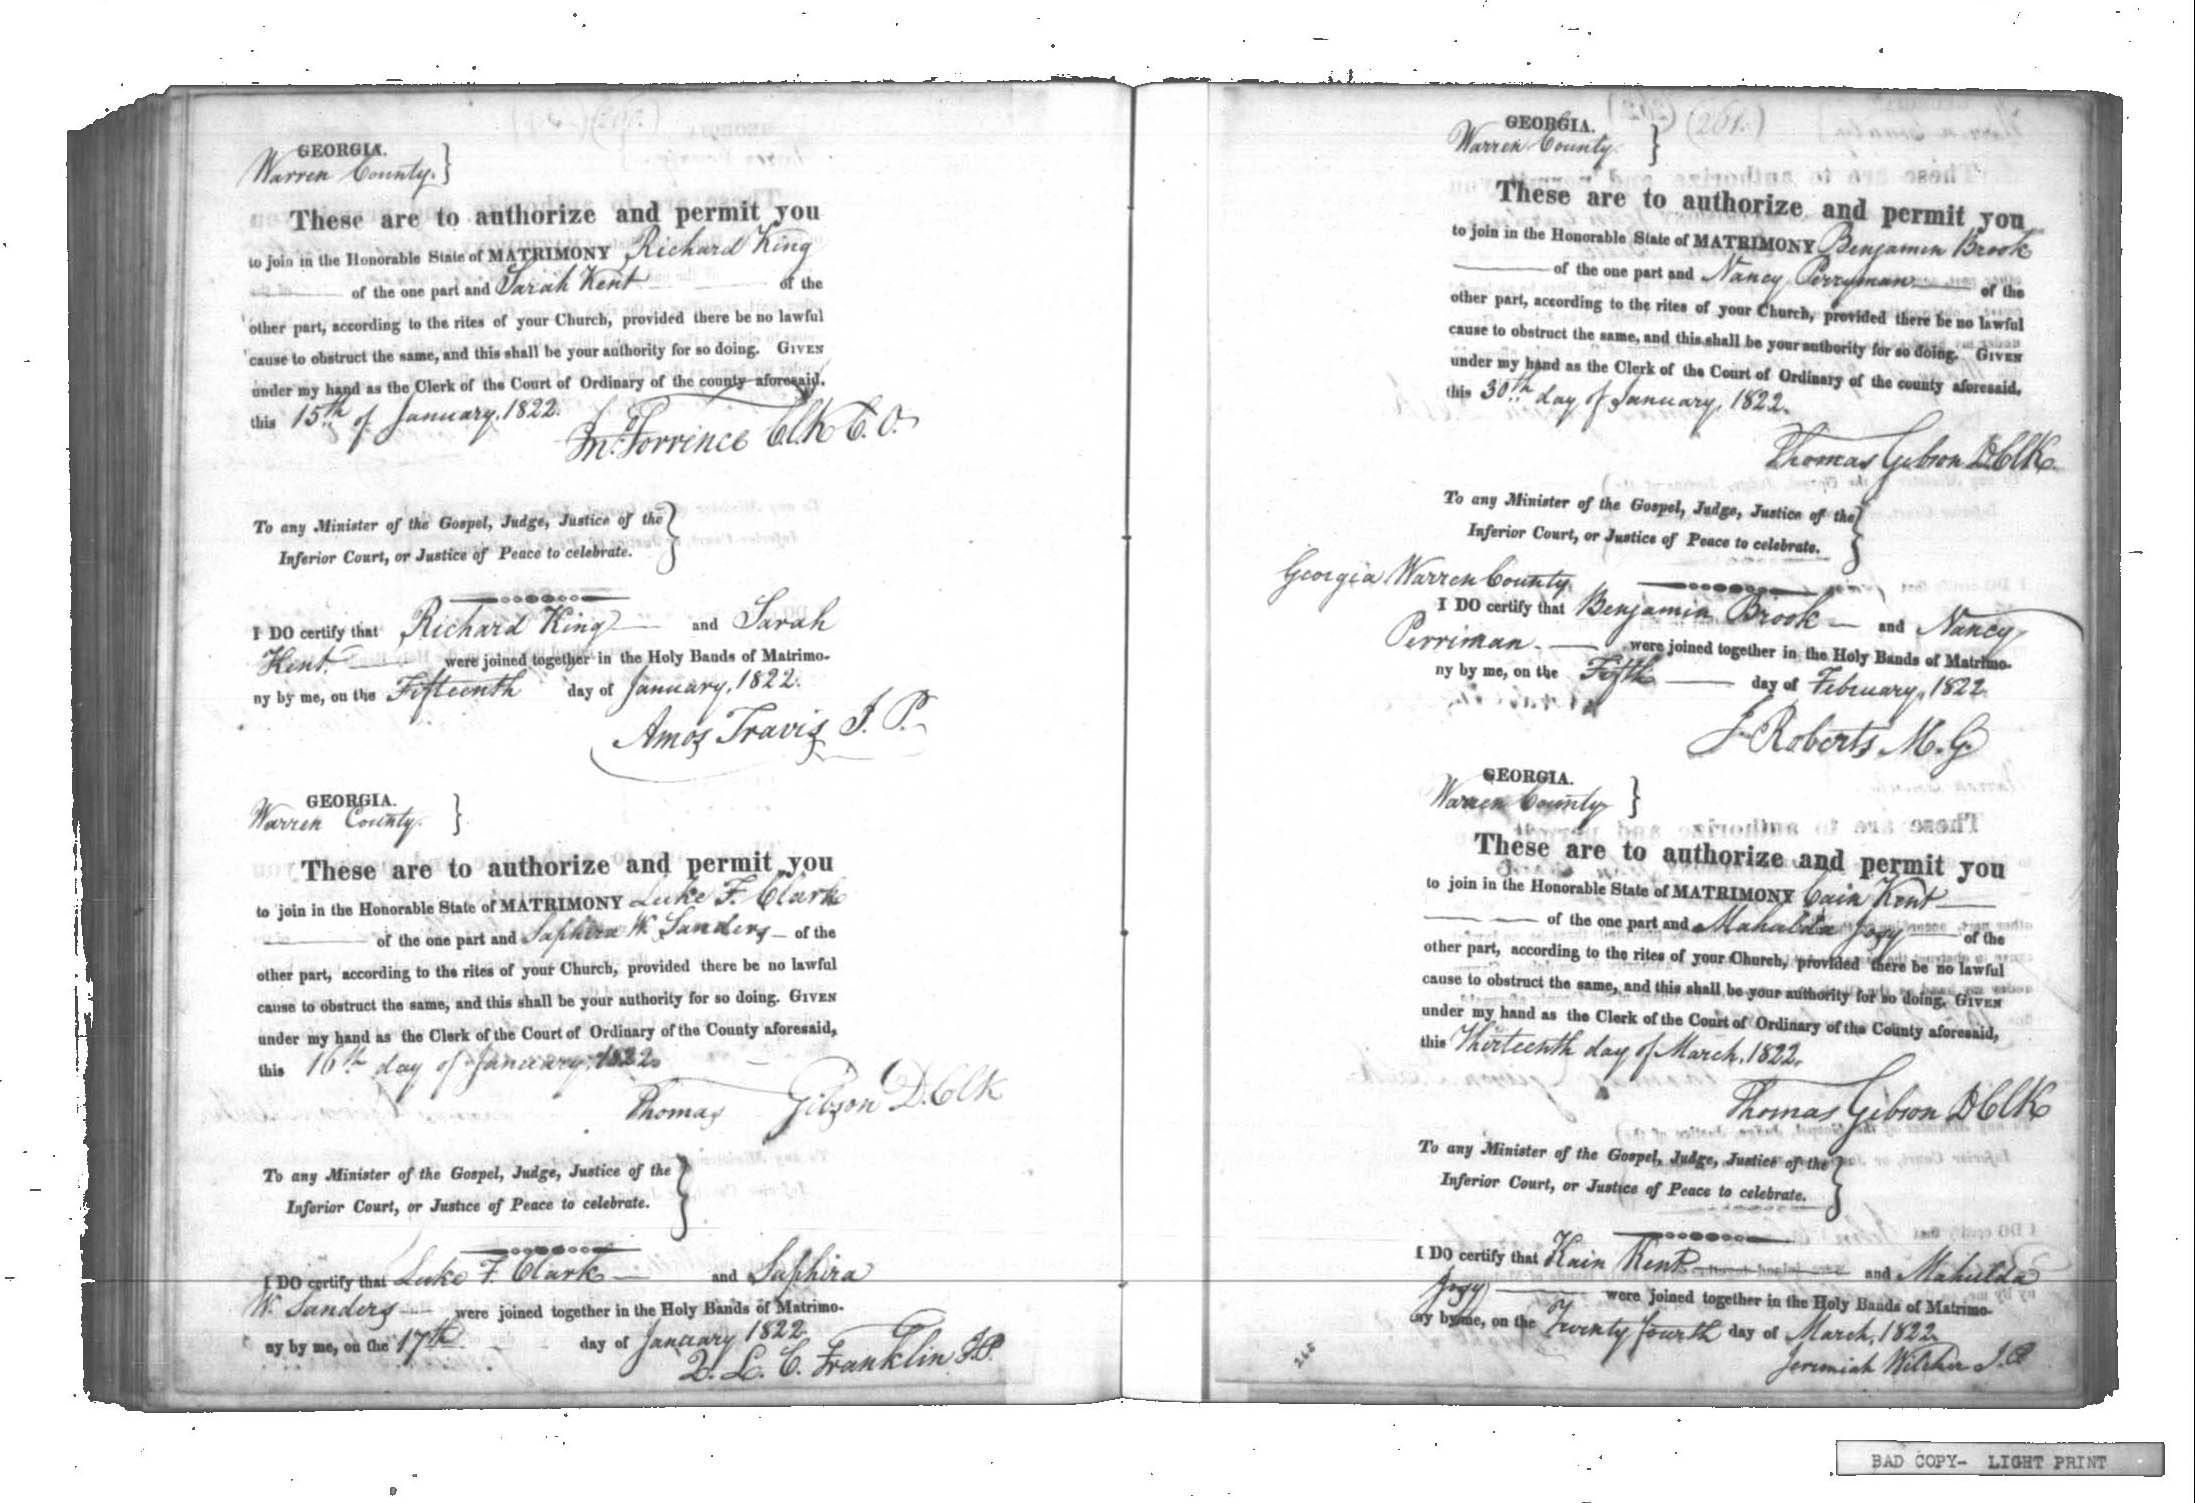 GEORGIA.
Warren County. }
These are to authorize and permit you
to join in the Honorable State of MATRIMONY Richard King
of the one part and Sarah Kent of the
other part, according to the rites of your Church, provided there be no lawful
cause to obstruct the same, and this shall be your authority for so doing. GIVEN
under my hand as the Clerk of the Court of Ordinary of the county aforesaid,
this 15th of January, 1822.
Torrince Clk C. O.
To any Minister of the Gospel, Judge, Justice of the }
Inferior Court, or Justice of Peace to celebrate.
I DO certify that Richard King and Sarah
Kent were joined together in the Holy Bands of Matrimo-
ny by me, on the Fifteenth day of January, 1822.
Amos Travis J. P.
GEORGIA.
Warren County. }
These are to authorize and permit you
to join in the Honorable State of MATRIMONY Luke F. Clark
of the one part and Saphira W. Sanders of the
other part, according to the rites of your Church, provided there be no lawful
cause to obstruct the same, and this shall be your authority for so doing. GIVEN
under my hand as the Clerk of the Court of Ordinary of the County aforesaid,
this 16th day of January, 1822.
Thomas Gibson D. Clk
To any Minister of the Gospel, Judge, Justice of the }
Inferior Court, or Justice of Peace to celebrate.
I DO certify that Luke F. Clark and Saphira
W. Sanders were joined together in the Holy Bands of Matrimo-
ny by me, on the 17th day of January 1822.
L. C. Franklin J.P.
(261.)
GEORGIA.
Warren County. }
These are to authorize and permit you
to join in the Honorable State of MATRIMONY Benjamin Brook
of the one part and Nancy Perryman of the
other part, according to the rites of your Church, provided there be no lawful
cause to obstruct the same, and this shall be your authority for so doing. GIVEN
under my hand as the Clerk of the Court of Ordinary of the county aforesaid,
this 30th day of January, 1822.
Thomas Gibson D Clk.
To any Minister of the Gospel, Judge, Justice of the }
Inferior Court, or Justice of Peace to celebrate.
Georgia Warren County
I DO certify that Benjamin Brook and Nancy
Perriman were joined together in the Holy Bands of Matrimo-
ny by me, on the Fifth day of February, 1822.
J. Roberts M. G.
GEORGIA.
Warren County }
These are to authorize and permit you
to join in the Honorable State of MATRIMONY Cain Kent
of the one part and Mahalda Jogy of the
other part, according to the rites of your Church, provided there be no lawful
cause to obstruct the same, and this shall be your authority for so doing. GIVEN
under my hand as the Clerk of the Court of Ordinary of the County aforesaid,
this Thirteenth day of March, 1822.
Thomas Gibson D Clk
To any Minister of the Gospel, Judge, Justice of the }
Inferior Court, or Justice of Peace to celebrate.
I DO certify that Kain Kent and Mahulda
Jogy were joined together in the Holy Bands of Matrimo-
ny by me, on the Twenty fourth day of March, 1822.
Jeremiah Wilcher J. P.
BAD COPY- LIGHT PRINT